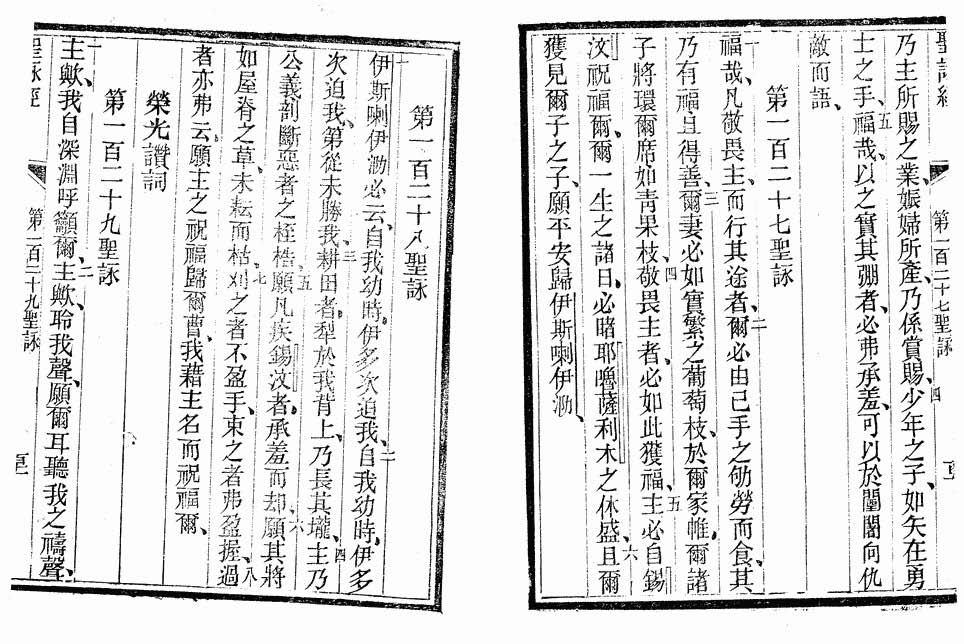 聖詠經 第一百二十七聖詠
乃主所賜之業、娠婦所產、乃係賞賜、四少年之子、如矢在勇
士之手、五福哉、以之實其弸者、必弗承羞、可以於闉闍向仇
敵而語、
第一百二十七聖詠
一福哉、凡敬畏主、而行其途者、二爾必由己手之劬勞而食、其
乃有福且得善、三爾妻必如實繁之葡萄枝、於爾家帷、爾諸
子將環爾席如青果枝、四敬畏主者、必如此獲福、五主必自錫
汶祝福爾、爾一生之諸日、必睹耶嚕薩利木之休盛、六且爾
獲見爾子之子、願平安歸伊斯喇伊泐、
第一百二十八聖詠
一伊斯喇伊泐必云、自我幼時、伊多次迫我、二自我幼時、伊多
次迫我、第從未勝我、三耕田者、犁於我背上、乃長其壠、四主乃
公義剖斷惡者之桎梏、五願凡疾錫汶者、承羞而却、六願其將
如屋脊之草、未耘而枯、七刈之者不盈手、束之者弗盈握、八過
者亦弗云、願主之祝福歸爾曹、我藉主名而祝福爾、
榮光讚詞
第一百二十九聖詠
一主歟、我自深淵呼籲爾、二主歟、聆我聲、願爾耳聽我之禱聲、
聖詠經 第一百二十九聖詠